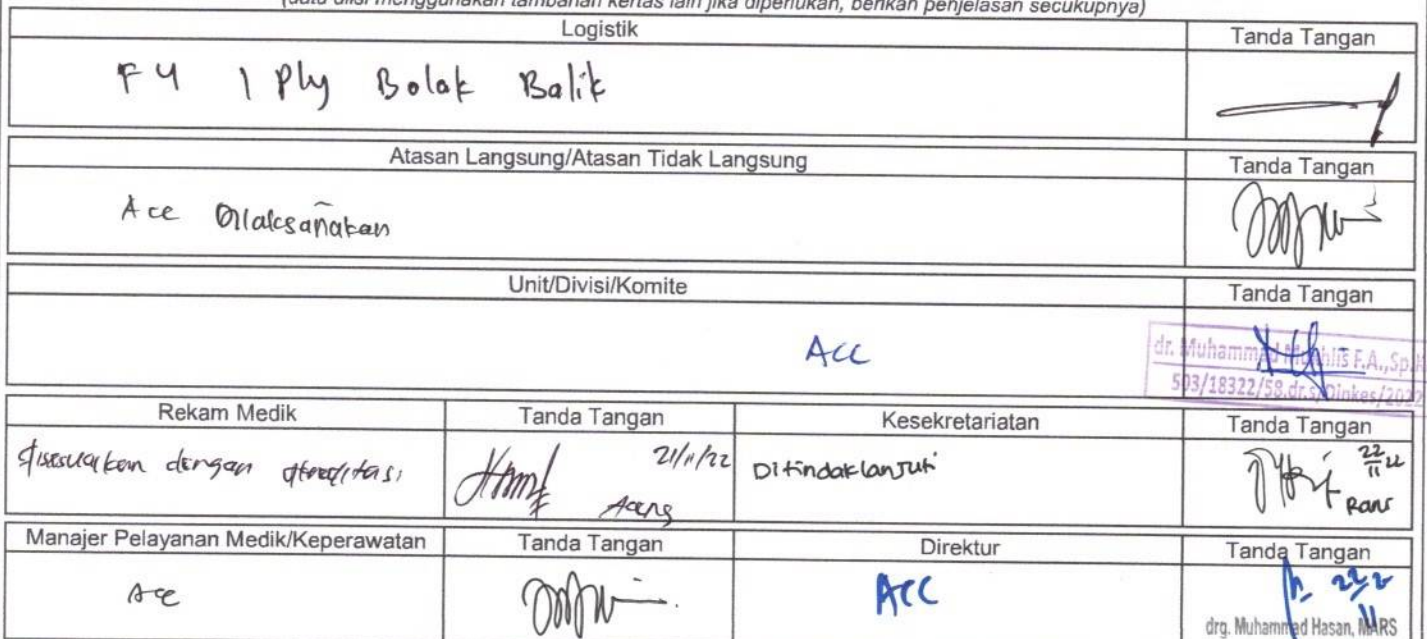 (satu diisi menggunakan tambahan kertas lain jika diperlukan, berikan penjelasan secukupnya)
Logistik Tanda Tangan
F4 1 Ply Bolak Balik
Atasan Langsung/Atasan Tidak Langsung Tanda Tangan
Acc Dilaksanakan
Unit/Divisi/Komite Tanda Tangan
ACC
dr. Muhammad Muchlis F.A.,Sp.
503/18322/58.dr.s/Dinkes/2022
Rekam Medik Tanda Tangan Kesekretariatan Tanda Tangan
disesuaikan dengan akreditasi 21/11/22 Ditindaklanjuti 22/11 22
Aceng Rans
Manajer Pelayanan Medik/Keperawatan Tanda Tangan Direktur Tanda Tangan
Acc ACC 22/11 2
drg. Muhammad Hasan, MARS